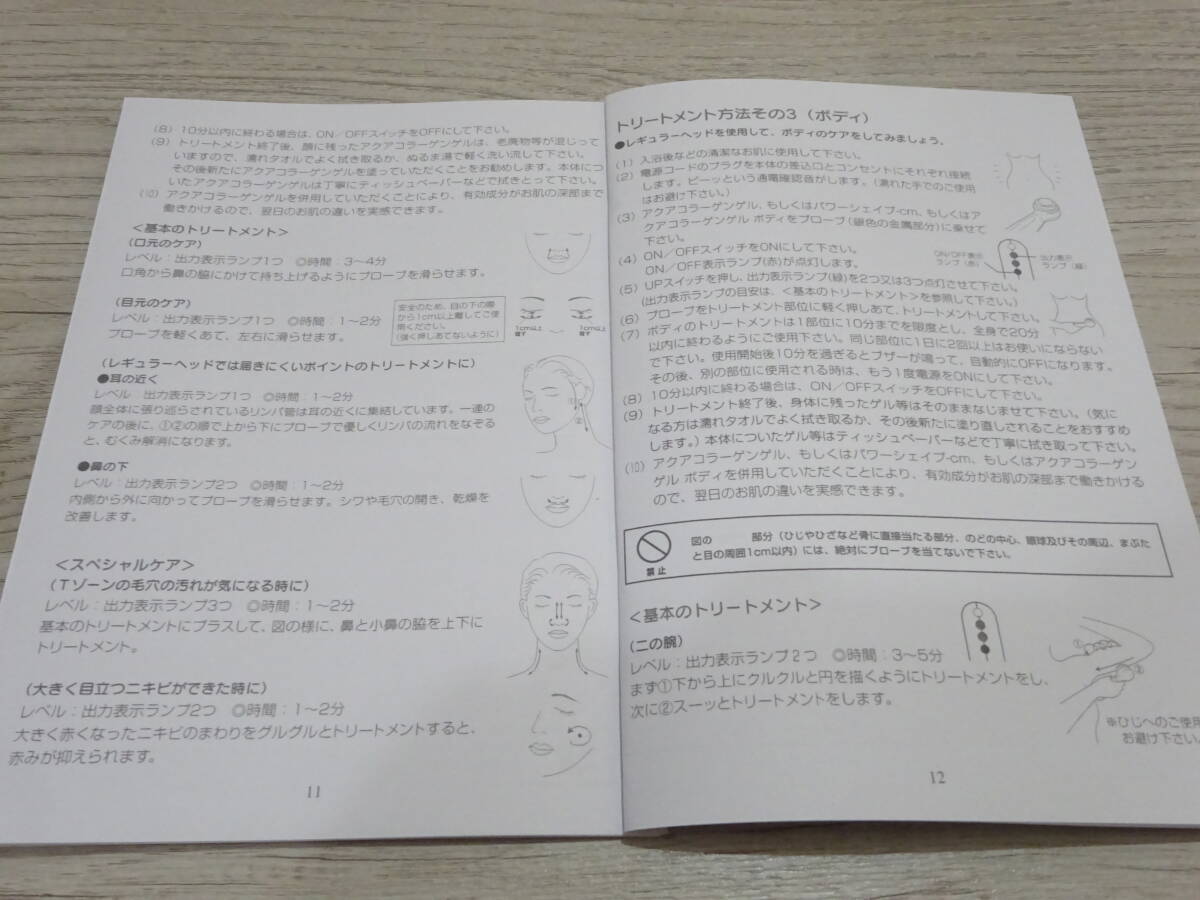 (8) 10分以内に終わる場合は、ON/OFFスイッチをOFFにして下さい。
(9) トリートメント終了後、顔に残ったアクアコラーゲンゲルは、老廃物等が混じって
いますので、濡れタオルでよく拭き取るか、ぬるま湯で軽く洗い流して下さい。
その後新たにアクアコラーゲンゲルを塗っていただくことをお勧めします。本体につ
いたアクアコラーゲンゲルは丁寧にティッシュペーパーなどで拭きとって下さい。
(10) アクアコラーゲンゲルを併用していただくことにより、有効成分がお肌の深部まで
働きかけるので、翌日のお肌の違いを実感できます。
<基本のトリートメント>
(口元のケア)
レベル：出力表示ランプ1つ ◎時間：3〜4分
口角から鼻の脇にかけて持ち上げるようにプローブを滑らせます。
(目元のケア)
レベル：出力表示ランプ1つ ◎時間：1〜2分
プローブを軽くあて、左右に滑らせます。
安全のため、目の下の際
から1cm以上離してご使
用ください。
(強く押しあてないように)
1cm以上
離す
1cm以上
離す
(レギュラーヘッドでは届きにくいポイントのトリートメントに)
●耳の近く
レベル：出力表示ランプ1つ ◎時間：1〜2分
顔全体に張り巡らされているリンパ管は耳の近くに集結しています。一連の
ケアの後に、①②の順で上から下にプローブで優しくリンパの流れをなぞる
と、むくみ解消になります。
●鼻の下
レベル：出力表示ランプ2つ ◎時間：1〜2分
内側から外に向かってプローブを滑らせます。シワや毛穴の開き、乾燥を
改善します。
<スペシャルケア>
(Tゾーンの毛穴の汚れが気になる時に)
レベル：出力表示ランプ3つ ◎時間：1〜2分
基本のトリートメントにプラスして、図の様に、鼻と小鼻の脇を上下に
トリートメント。
(大きく目立つニキビができた時に)
レベル：出力表示ランプ2つ ◎時間：1〜2分
大きく赤くなったニキビのまわりをグルグルとトリートメントすると、
赤みが抑えられます。
11
トリートメント方法その3（ボディ）
●レギュラーヘッドを使用して、ボディのケアをしてみましょう。
(1) 入浴後などの清潔なお肌に使用して下さい。
(2) 電源コードのプラグを本体の差込口とコンセントにそれぞれ接続
します。ピーッという通電確認音がします。（濡れた手でのご使用
はお避け下さい。）
(3) アクアコラーゲンゲル、もしくはパワーシェイプ-cm、もしくはア
クアコラーゲンゲル ボディをプローブ（銀色の金属部分）に乗せて
下さい。
(4) ON/OFFスイッチをONにして下さい。
ON/OFF表示ランプ(赤)が点灯します。
ON/OFF表示
ランプ（赤）
出力表示
ランプ（緑）
(5) UPスイッチを押し、出力表示ランプ(緑)を2つ又は3つ点灯させて下さい。
(出力表示ランプの目安は、<基本のトリートメント>を参照して下さい。)
(6) プローブをトリートメント部位に軽く押しあて、トリートメントして下さい。
(7) ボディのトリートメントは1部位に10分までを限度とし、全身で20分
以内に終わるようにご使用下さい。同じ部位に1日に2回以上はお使いにならない
で下さい。使用開始後10分を過ぎるとブザーが鳴って、自動的にOFFになります。
その後、別の部位に使用される時は、もう1度電源をONにして下さい。
(8) 10分以内に終わる場合は、ON/OFFスイッチをOFFにして下さい。
(9) トリートメント終了後、身体に残ったゲル等はそのままなじませて下さい。（気に
なる方は濡れタオルでよく拭き取るか、その後新たに塗り直しされることをおすすめ
します。）本体についたゲル等はティッシュペーパーなどで丁寧に拭き取って下さい。
(10) アクアコラーゲンゲル、もしくはパワーシェイプ-cm、もしくはアクアコラーゲン
ゲル ボディを併用していただくことにより、有効成分がお肌の深部まで働きかける
ので、翌日のお肌の違いを実感できます。
禁止
図の 部分（ひじやひざなど骨に直接当たる部分、のどの中心、眼球及びその周辺、まぶた
と目の周囲1cm以内）には、絶対にプローブを当てないで下さい。
<基本のトリートメント>
(二の腕)
レベル：出力表示ランプ2つ ◎時間：3〜5分
まず①下から上にクルクルと円を描くようにトリートメントをし、
次に②スーッとトリートメントをします。
①
②
※ひじへのご使用
お避け下さい。
12